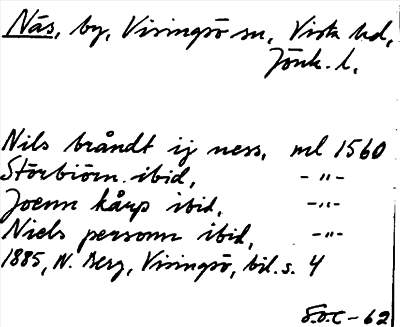 Näs, by, Visingsö sn, Vista hd,
Jönk. l.
Nils bråndt ij ness, ml 1560
Störbiörn ibid, -"-
Joenn kårp ibid, -"-
Niels personn ibid, -"-
1885, N. Berg, Visingsö, bil. s. 4
S.O.C-62